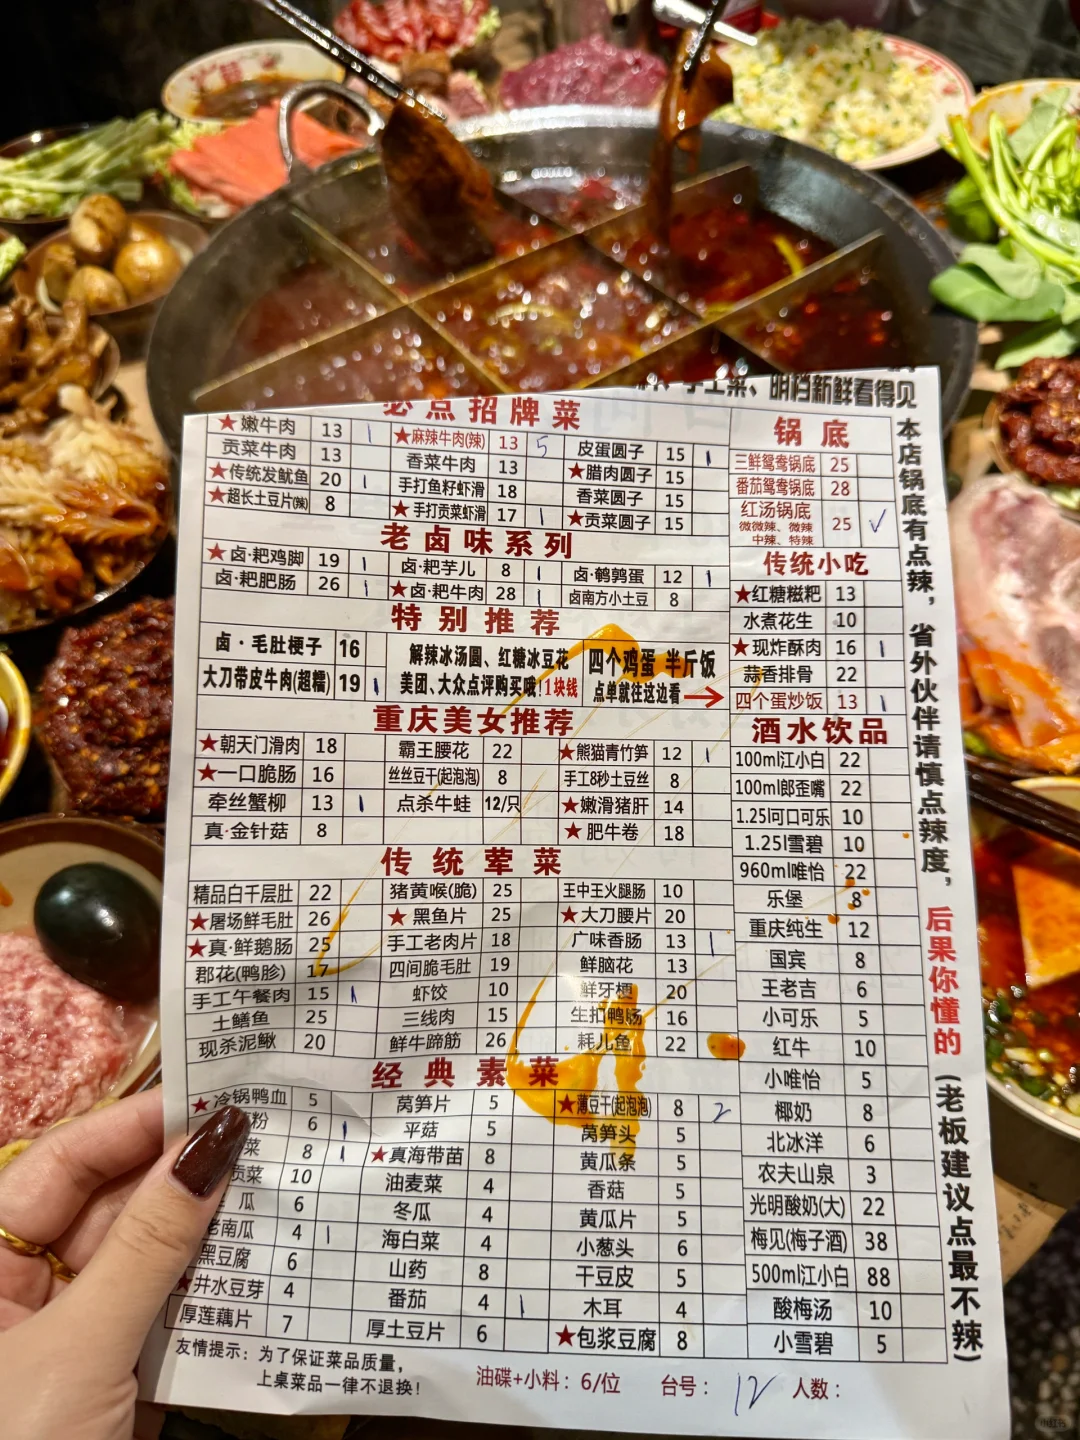 手工菜、明档新鲜看得见
必点招牌菜
★嫩牛肉 13 1 ★麻辣牛肉(辣) 13 5 皮蛋圆子 15 1
贡菜牛肉 13 香菜牛肉 13 ★腊肉圆子 15
★传统发鱿鱼 20 1 手打鱼籽虾滑 18 香菜圆子 15
★超长土豆片(辣) 8 ★手打贡菜虾滑 17 1 ★贡菜圆子 15
老卤味系列
★卤·耙鸡脚 19 1 卤·耙芋儿 8 1 卤·鹌鹑蛋 12 1
卤·耙肥肠 26 1 ★卤·耙牛肉 28 1 卤南方小土豆 8
特别推荐
卤·毛肚梗子 16
大刀带皮牛肉(超糯) 19 1
解辣冰汤圆、红糖冰豆花
美团、大众点评购买哦!1块钱
四个鸡蛋 半斤饭
点单就往这边看→
重庆美女推荐
★朝天门滑肉 18 霸王腰花 22 ★熊猫青竹笋 12 1
★一口脆肠 16 丝丝豆干(起泡泡) 8 手工8秒土豆丝 8
牵丝蟹柳 13 1 点杀牛蛙 12/只 ★嫩滑猪肝 14
真·金针菇 8 ★肥牛卷 18
传统荤菜
精品白千层肚 22 猪黄喉(脆) 25 王中王火腿肠 10
★屠场鲜毛肚 26 ★黑鱼片 25 ★大刀腰片 20
★真·鲜鹅肠 25 手工老肉片 18 广味香肠 13 1
郡花(鸭胗) 17 四间脆毛肚 19 鲜脑花 13
手工午餐肉 15 1 虾饺 10 鲜牙梗 20
土鳝鱼 25 三线肉 15 生扣鸭肠 16
现杀泥鳅 20 鲜牛蹄筋 26 耗儿鱼 22
经典素菜
★冷锅鸭血 5 莴笋片 5 ★薄豆干(起泡泡) 8 2
粉 6 1 平菇 5 莴笋头 5
菜 8 1 ★真海带苗 8 黄瓜条 5
贡菜 10 油麦菜 4 香菇 5
瓜 6 冬瓜 4 黄瓜片 5
老南瓜 4 1 海白菜 4 小葱头 6
黑豆腐 6 山药 8 干豆皮 5
★井水豆芽 4 番茄 4 1 木耳 4
厚莲藕片 7 厚土豆片 6 ★包浆豆腐 8
锅底
三鲜鸳鸯锅底 25
番茄鸳鸯锅底 28
红汤锅底 25 ✓
微微辣、微辣
中辣、特辣
传统小吃
★红糖糍粑 13
水煮花生 10
★现炸酥肉 16 1
蒜香排骨 22
四个蛋炒饭 13 1
酒水饮品
100ml江小白 22
100ml郎歪嘴 22
1.25l可口可乐 10
1.25l雪碧 10
960ml唯怡 22
乐堡 8
重庆纯生 12
国宾 8
王老吉 6
小可乐 5
红牛 10
小唯怡 5
椰奶 8
北冰洋 6
农夫山泉 3
光明酸奶(大) 22
梅见(梅子酒) 38
500ml江小白 88
酸梅汤 10
小雪碧 5
本店锅底有点辣,省外伙伴请慎点辣度,后果你懂的(老板建议点最不辣)
友情提示:为了保证菜品质量,
上桌菜品一律不退换!
油碟+小料:6/位 台号: 12 人数:
小红书